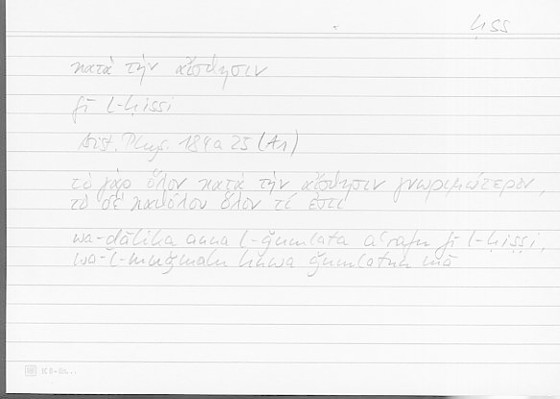 ḥss
κατὰ τὴν αἴσθησιν
fī l-ḥissi
Arist. Phys. 184a25 (A1)
τὸ γὰρ ὅλον κατὰ τὴν αἴσθησιν γνωριμώτερον,
τὸ δὲ καθόλου ὅλον τί ἐστι
wa-ḏālika anna l-ǧumlata aʿrafu fī l-ḥissi,
wa-l-muǧmalu huwa ǧumlatun mā